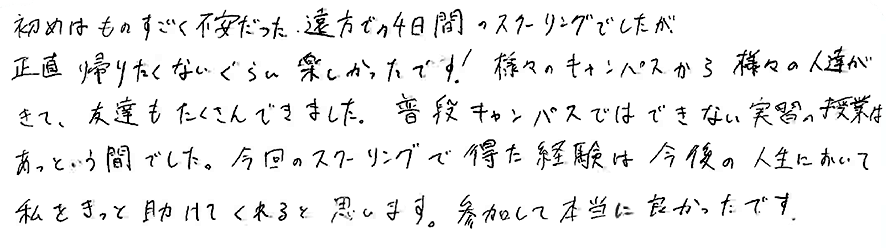 初めはものすごく不安だった遠方での4日間のスクーリングでしたが
正直帰りたくないぐらい楽しかったです！様々のキャンパスから様々の人達が
きて、友達もたくさんできました。普段キャンパスではできない実習の授業は
あっという間でした。今回のスクーリングで得た経験は今後の人生において
私をきっと助けてくれると思います。参加して本当に良かったです.